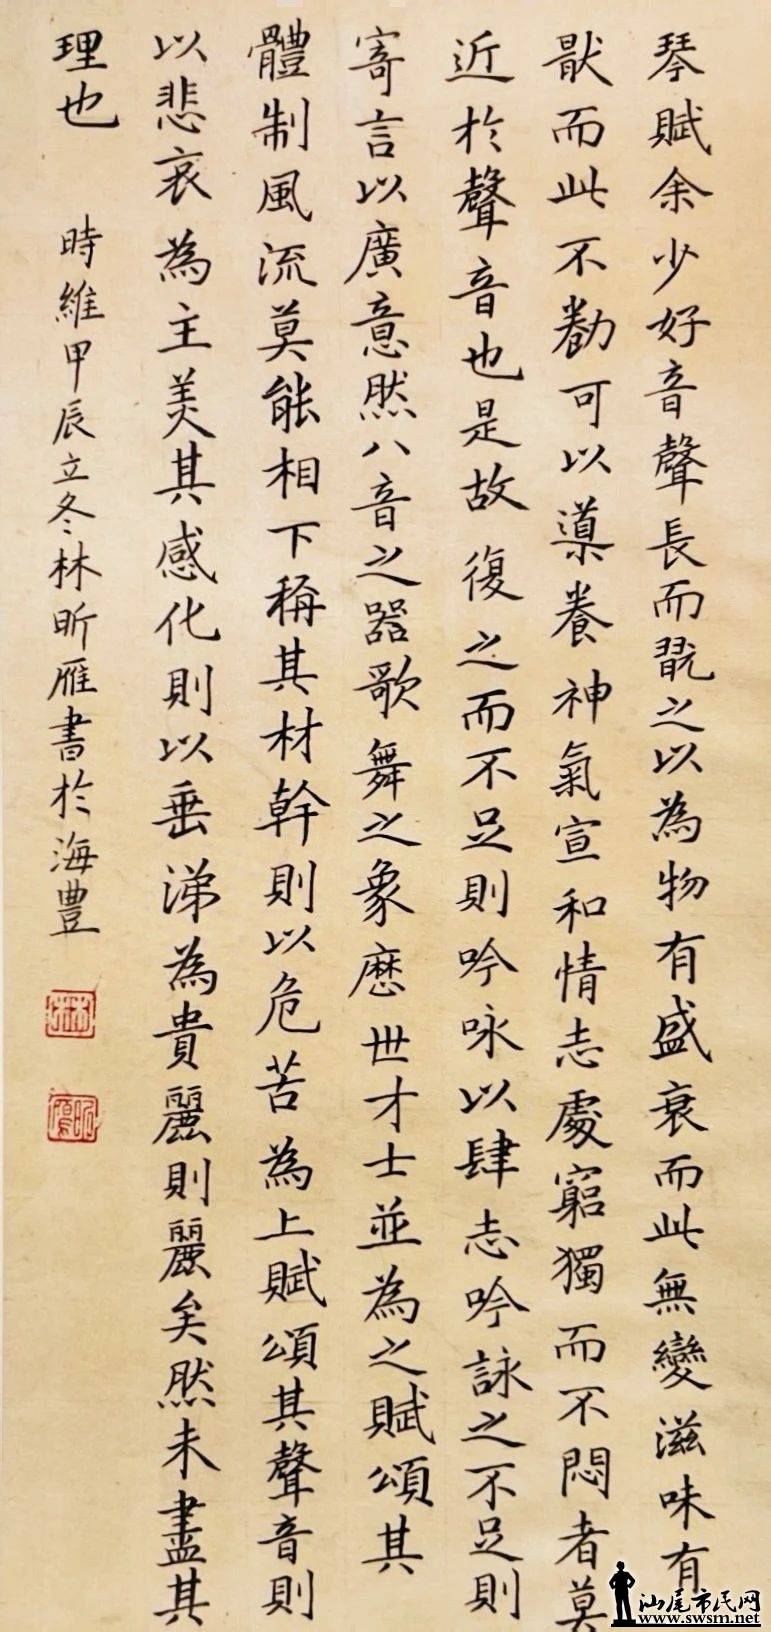 琴賦余少好音聲長而翫之以為物有盛衰而此無變滋味有
猒而此不勌可以導養神氣宣和情志處窮獨而不悶者莫
近於聲音也是故復之而不足則吟咏以肆志吟詠之不足則
寄言以廣意然八音之器歌舞之象歷世才士並為之賦頌其
體制風流莫能相下稱其材幹則以危苦為上賦頌其聲音則
以悲哀為主美其感化則以垂涕為貴麗則麗矣然未盡其
理也
時維甲辰立冬林昕雁書於海豐
汕尾市民网
www.swsm.net